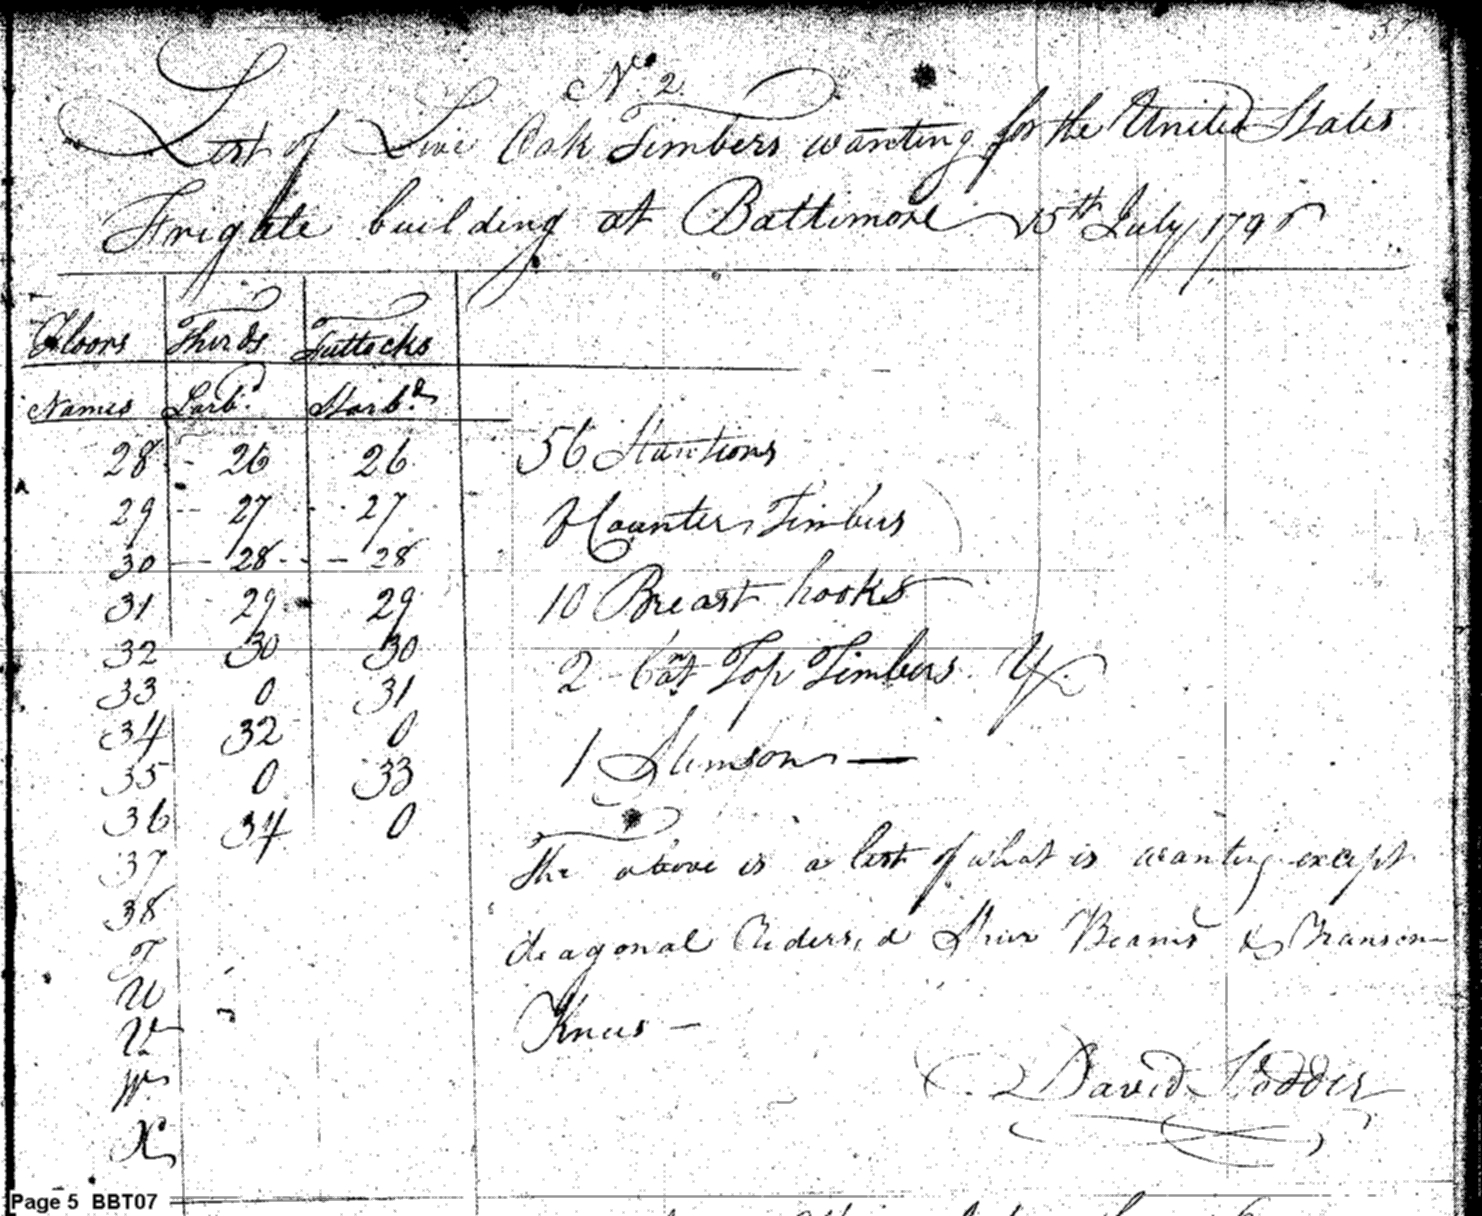 No. 2
List of Live Oak Timbers wanting for the United States
Frigate building at Baltimore 15th July 179
Floors Thirds Futtocks
Names Larbd. Starbd.
28 26 26
29 27 27
30 28 28
31 29 29
32 30 30
33 0 31
34 32 0
35 0 33
36 34 0
37
38
T
U
V
W
X
56 Stantions
8 Counter Timbers
10 Breast hooks
2 Top Timbers Y
1 Stemson —
The above is a list of what is wanting except
diagonal Riders, Beams & Transom
Knees —
David Stodder
Page 5 BBT07